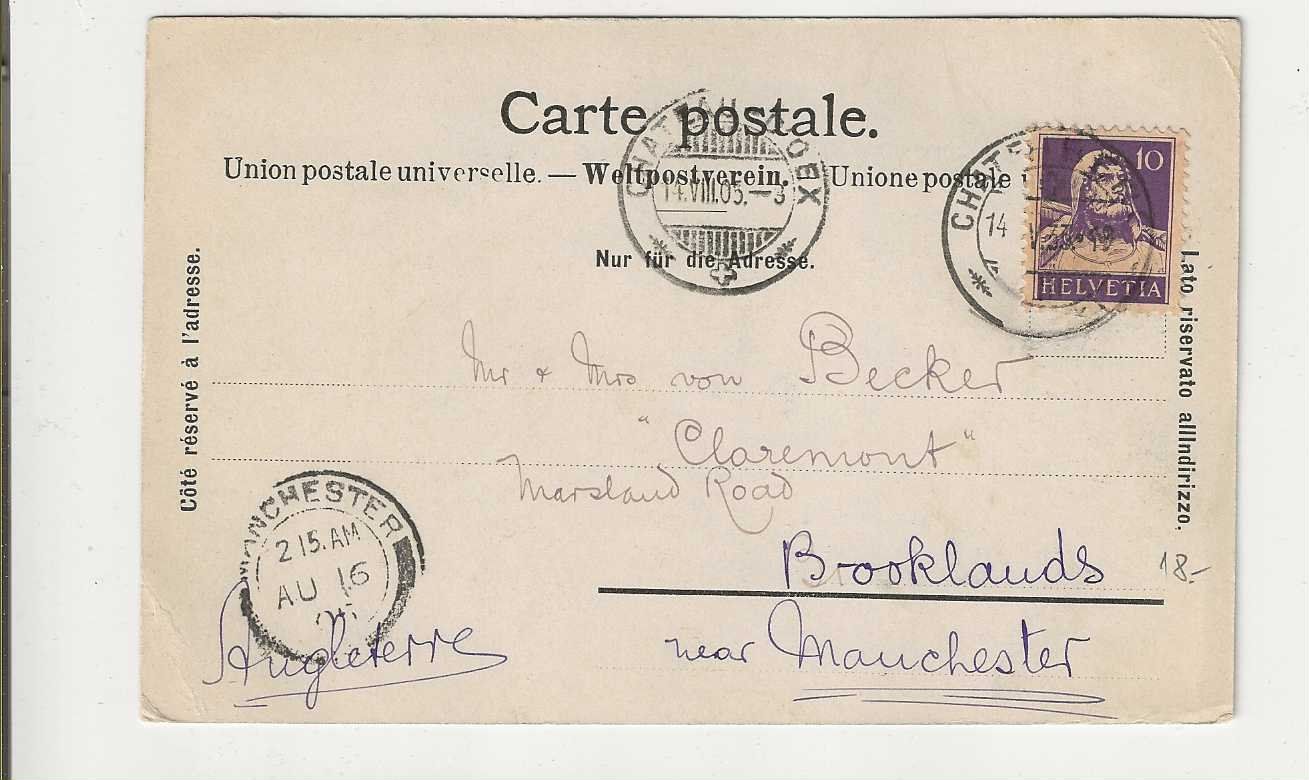 Carte postale.
Union postale universelle. — Weltpostverein. — Unione postale
Nur für die Adresse.
Côté réservé à l'adresse.
Lato riservato all'Indirizzo.
CHATEAU D'OEX
14.VIII.05.—3
CHATE
14
10
HELVETIA
Mr & Mrs von Becker
"Claremont"
Marsland Road
Brooklands
near Manchester
Angleterre
MANCHESTER
2 15. AM
AU 16
05
18.-